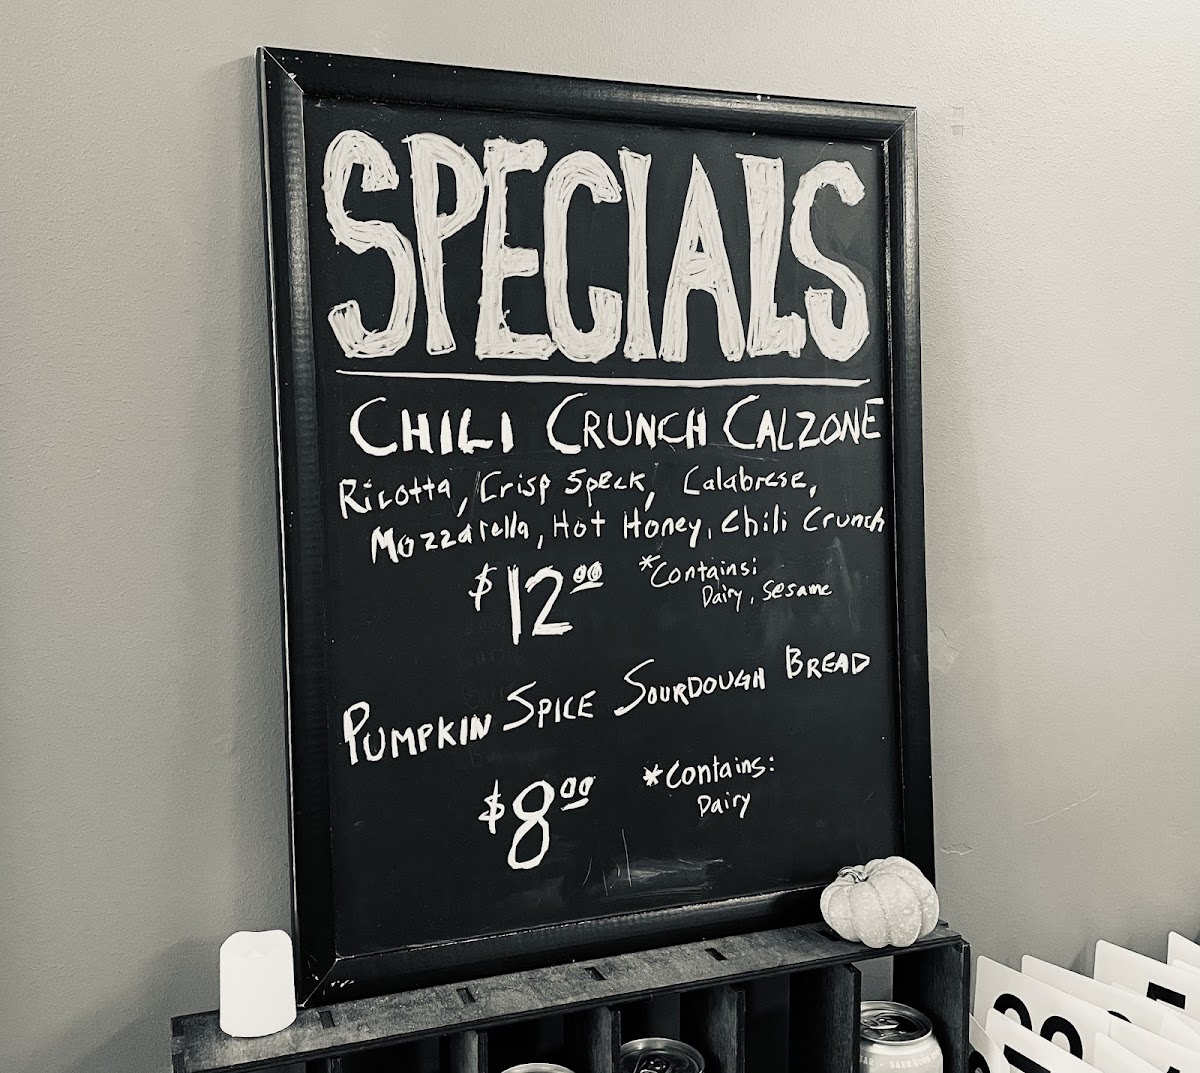 SPECIALS
CHILI CRUNCH CALZONE
Ricotta, Crisp Speck, Calabrese,
Mozzarella, Hot Honey, Chili Crunch
$12.00 *Contains:
Dairy, Sesame
PUMPKIN SPICE SOURDOUGH BREAD
$8.00 *Contains:
Dairy